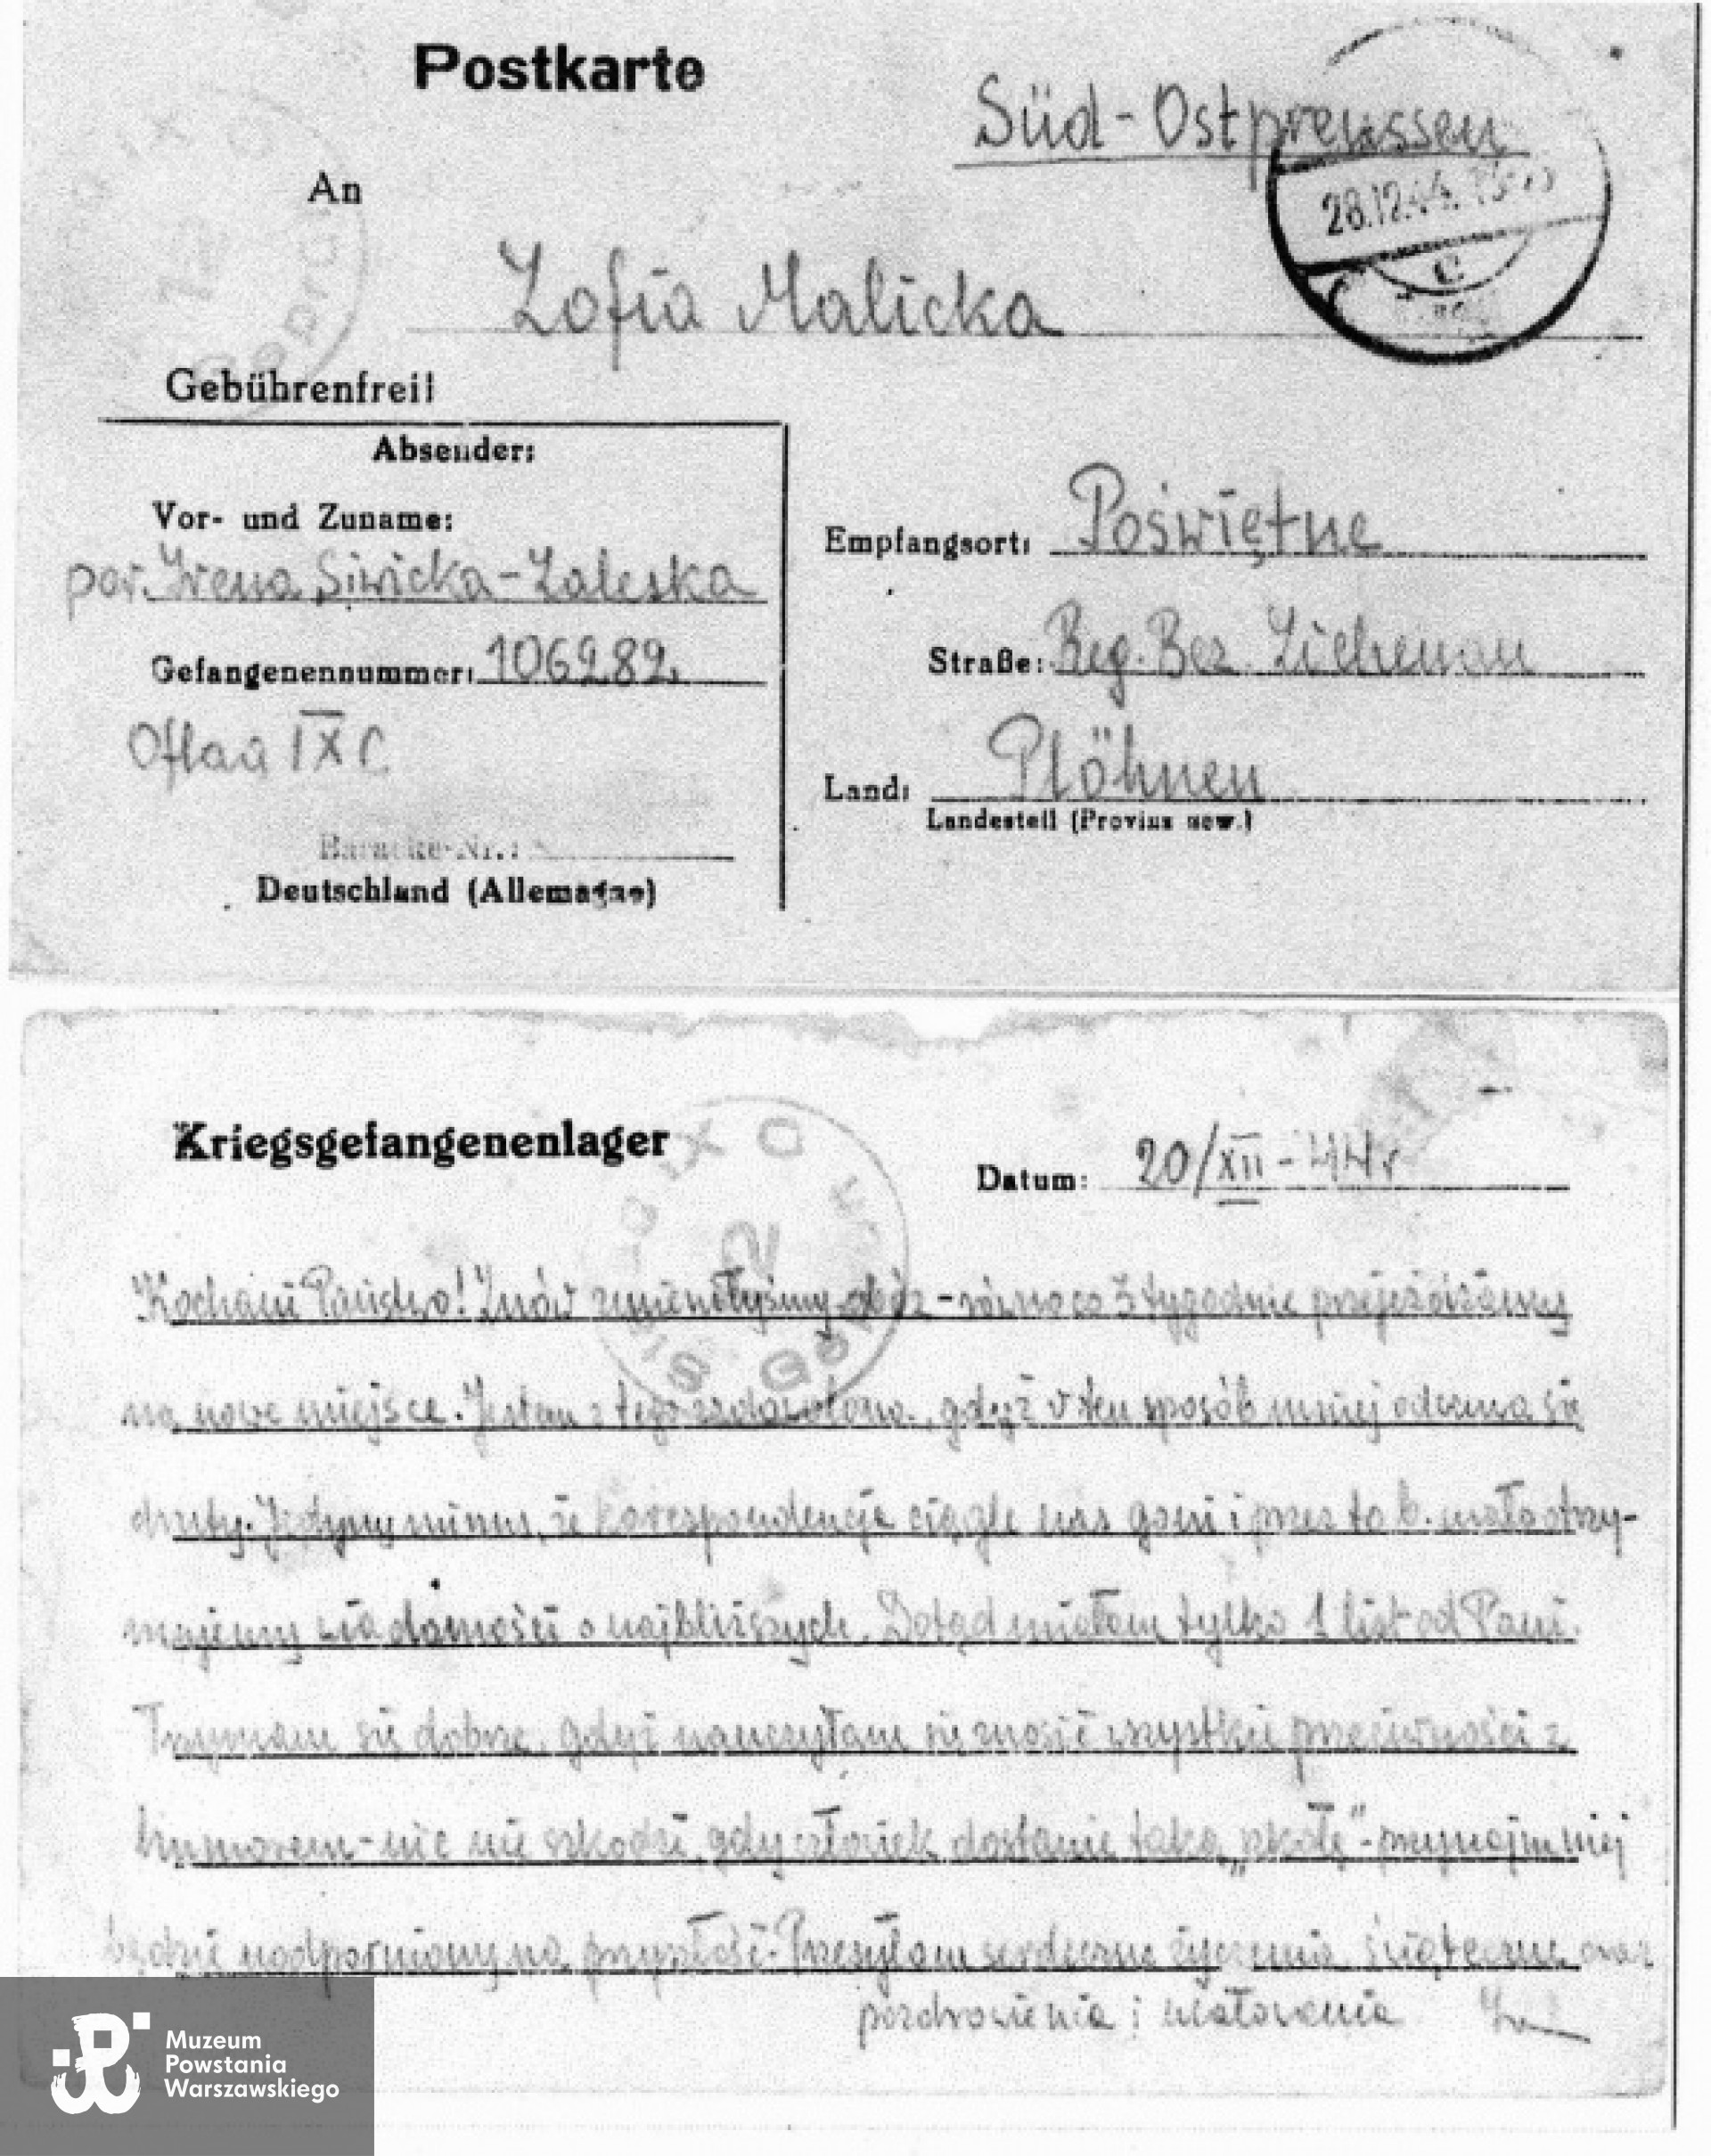 Postkarte
Süd-Ostpreussen
28.12.44.
An
Zofia Malicka
Gebührenfrei!
Absender:
Vor- und Zuname:
por. Irena Siwicka-Zaleska
Gefangenennummer: 106282.
Oflag IX C
Baracke-Nr.:
Deutschland (Allemagne)
Empfangsort: Poświętne
Straße: Reg. Bez. Zichenau
Land: Plöhnen
Landesteil (Provinz usw.)
Kriegsgefangenenlager
Datum: 20/XII-44r
Kochani Państwo! Znów zmieniłyśmy obóz - równo co 3 tygodnie przejeżdżamy
na nowe miejsce. Jestem z tego zadowolona, gdyż w ten sposób mniej odczuwa się
druty. Jedyny minus, że korespondencja ciągle nas goni i przez to b. mało otrzy-
mujemy wiadomości o najbliższych. Dotąd miałam tylko 1 list od Pani.
Trzymam się dobrze, gdyż nauczyłam się znosić wszystkie przeciwności z
humorem - nic nie szkodzi, gdy człowiek dostanie taką „szkołę" - przynajmniej
będzie uodporniony na przyszłość. Przesyłam serdeczne życzenia świąteczne oraz
pozdrowienia i ucałowania
Muzeum
Powstania
Warszawskiego